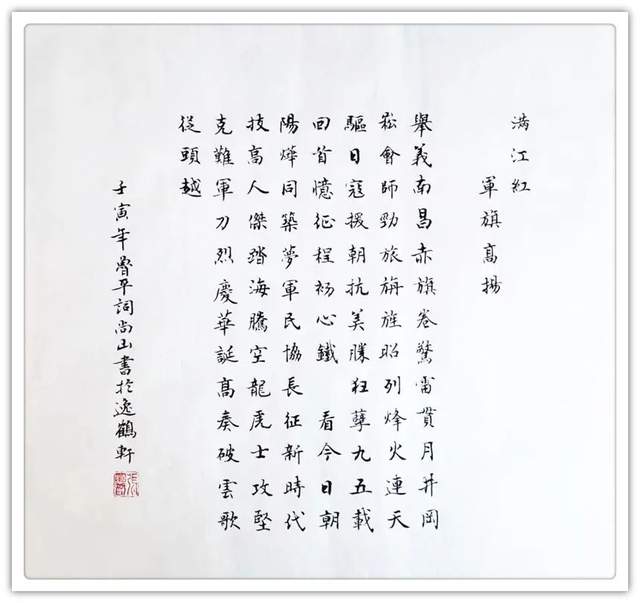 满江紅
軍旗髙揚
舉義南昌赤旗卷驚雷貫月井岡
崧會師勁旅旃旌昭列烽火連天
驅日寇援朝抗美狂孽九五載
回首憶征程初心鐵 看今日朝
陽燁同築夢軍民協長征新時代
技高人傑踏海騰空龍虎士攻堅
克難軍刀烈慶華誕髙奏破雲歌
從頭越
壬寅年魯平詞尚山書於逸鶴軒